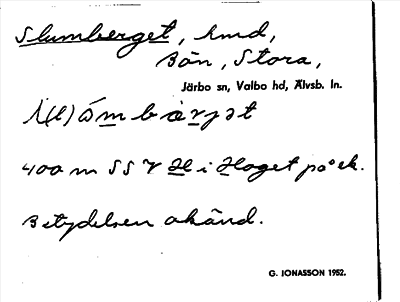 Slumberget, hmd,
Bön, Stora,
Järbo sn, Valbo hd, Älvsb. ln.
400 m SSV H i Haget på ek.
Betydelsen okänd.
G. JONASSON 1952.